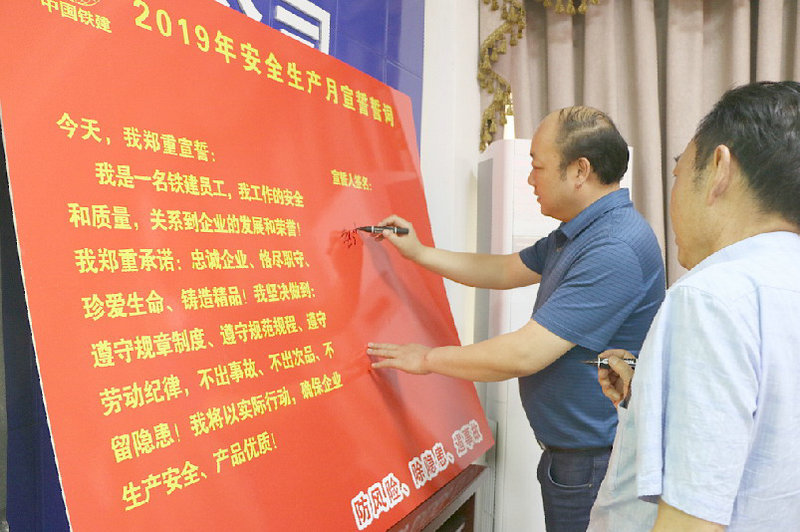 中国铁建
公司
2019年安全生产月宣誓誓词
今天，我郑重宣誓：
我是一名铁建员工，我工作的安全
和质量，关系到企业的发展和荣誉！
我郑重承诺：忠诚企业、恪尽职守、
珍爱生命、铸造精品！我坚决做到：
遵守规章制度、遵守规范规程、遵守
劳动纪律，不出事故、不出次品、不
留隐患！我将以实际行动，确保企业
生产安全、产品优质！
宣誓人签名：
防风险、除隐患、遏事故